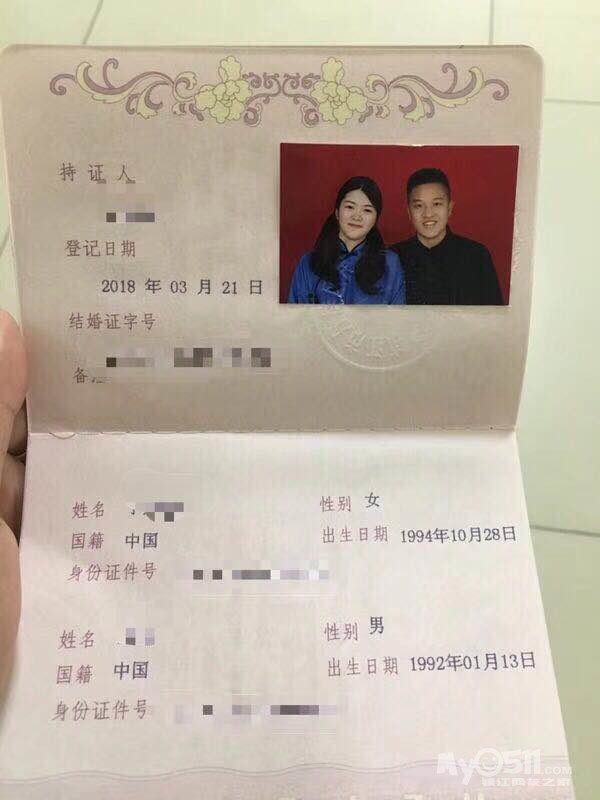 持证人
登记日期
2018 年 03 月 21 日
结婚证字号
备
姓名
性别 女
国籍 中国
出生日期 1994年10月28日
身份证件号
姓名
性别 男
国籍 中国
出生日期 1992年01月13日
身份证件号
My0511.com